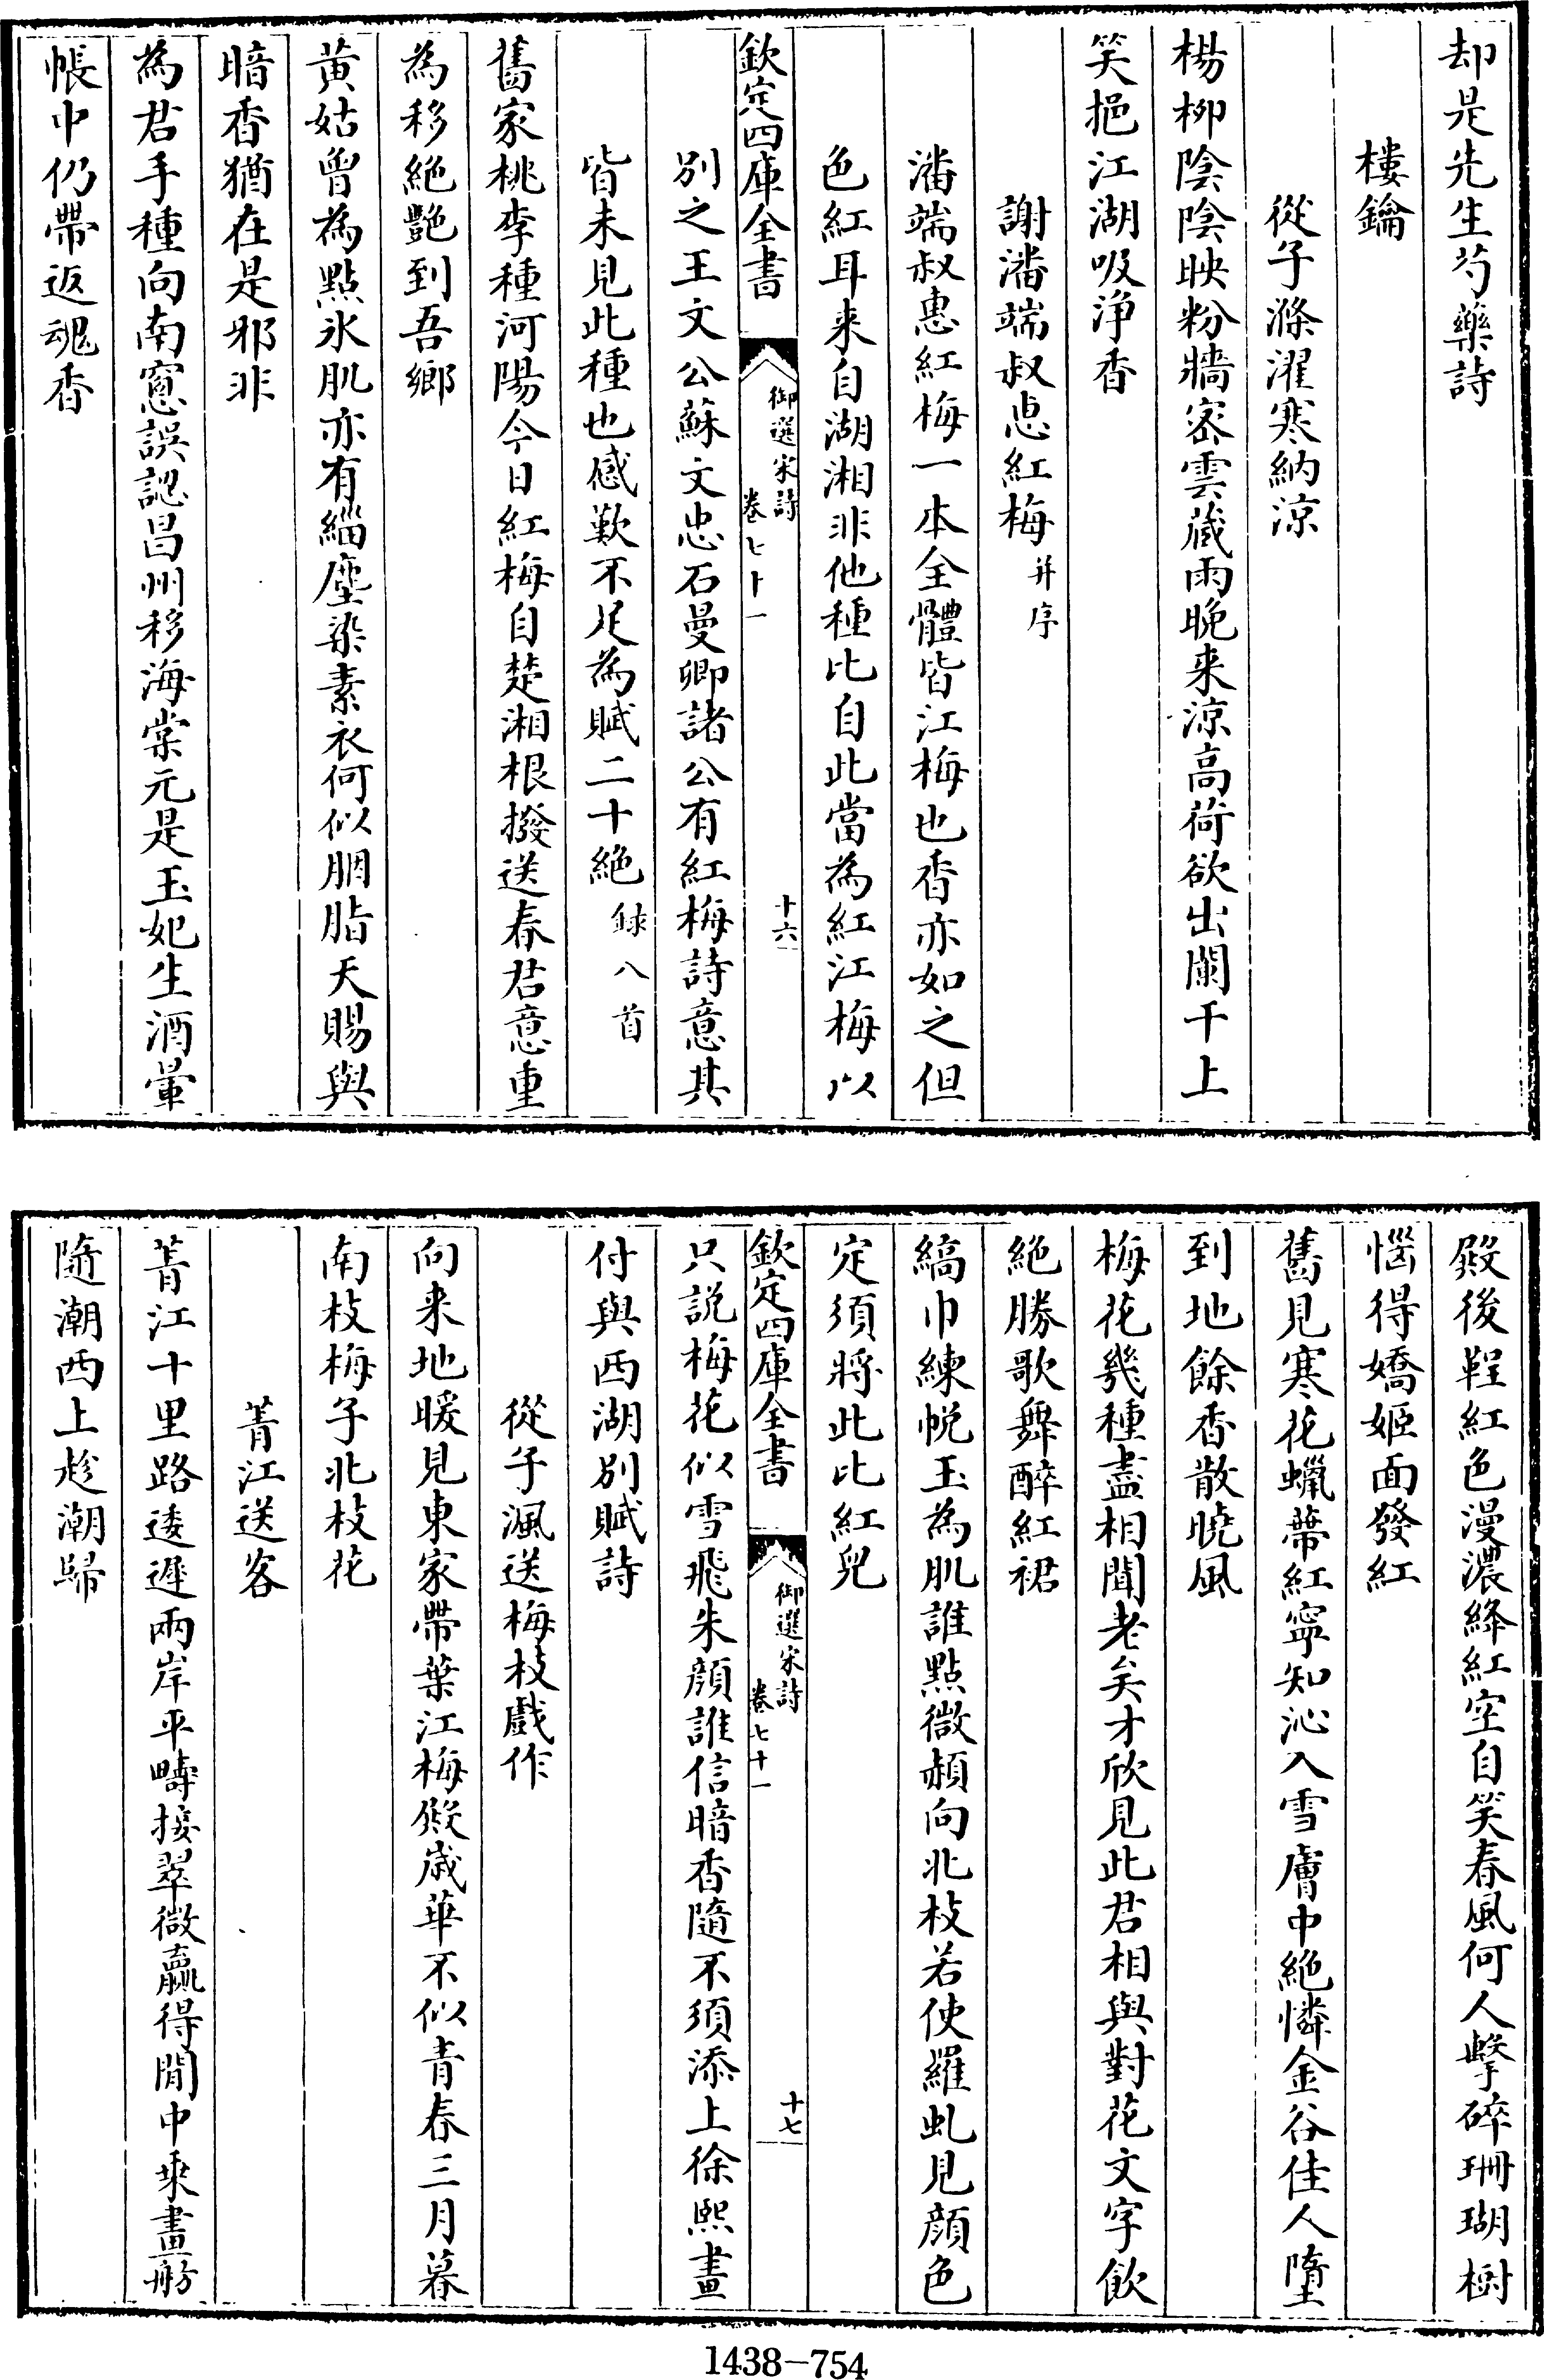 却是先生芍藥詩
樓鑰
從子滌濯寒納涼
楊柳陰陰映粉牆密雲藏雨晚来涼高荷欲出闌干上
笑挹江湖吸浄香
謝潘端叔恵紅梅并序
潘端叔惠紅梅一本全體皆江梅也香亦如之但
色紅耳来自湖湘非他種比自此當為紅江梅以
欽定四庫全書
御選宋詩
卷七十一
十六
別之王文公蘇文忠石曼卿諸公有紅梅詩意其
皆未見此種也感歎不足為賦二十絶録八首
舊家桃李種河陽今日紅梅自楚湘根撥送春君意重
為移絶艷到吾鄉
黄姑曾為點氷肌亦有緇塵染素衣何似胭脂天賜與
暗香猶在是邪非
為君手種向南窻誤認昌州移海棠元是玉妃生酒暈
帳中仍帶返魂香
殿後鞓紅色漫濃絳紅空自笑春風何人擊碎珊瑚樹
惱得嬌姬面發紅
舊見寒花蠟蔕紅寧知沁入雪膚中絶憐金谷佳人墮
到地餘香散曉風
梅花幾種盡相聞老矣才欣見此君相與對花文字飲
絶勝歌舞醉紅裙
縞巾練帨玉為肌誰點微頳向北枝若使羅虬見顔色
定須將此比紅兒
欽定四庫全書
御選宋詩
卷七十一
十七
只説梅花似雪飛朱顔誰信暗香隨不須添上徐熙畫
付與西湖別賦詩
從子渢送梅枝戲作
向来地暖見東家帶葉江梅殿歳華不似青春三月暮
南枝梅子北枝花
菁江送客
菁江十里路逶遲兩岸平疇接翠微贏得閒中乗畫舫
隨潮西上趂潮歸
1438-754